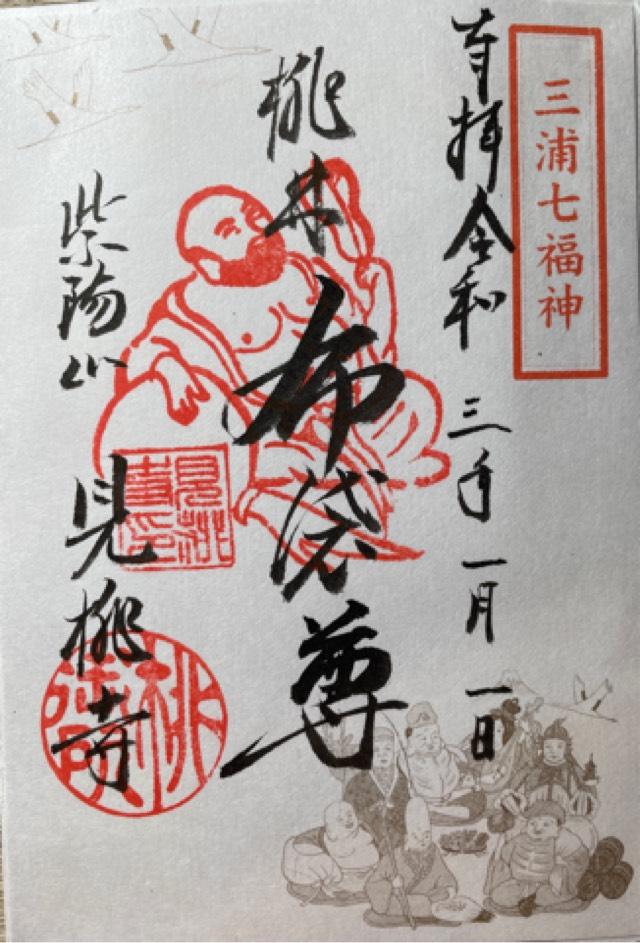 三浦七福神
奉拝 令和 三年 一月 一日
桃林 布袋尊
紫陽山 見桃寺
見桃寺印
桃御所